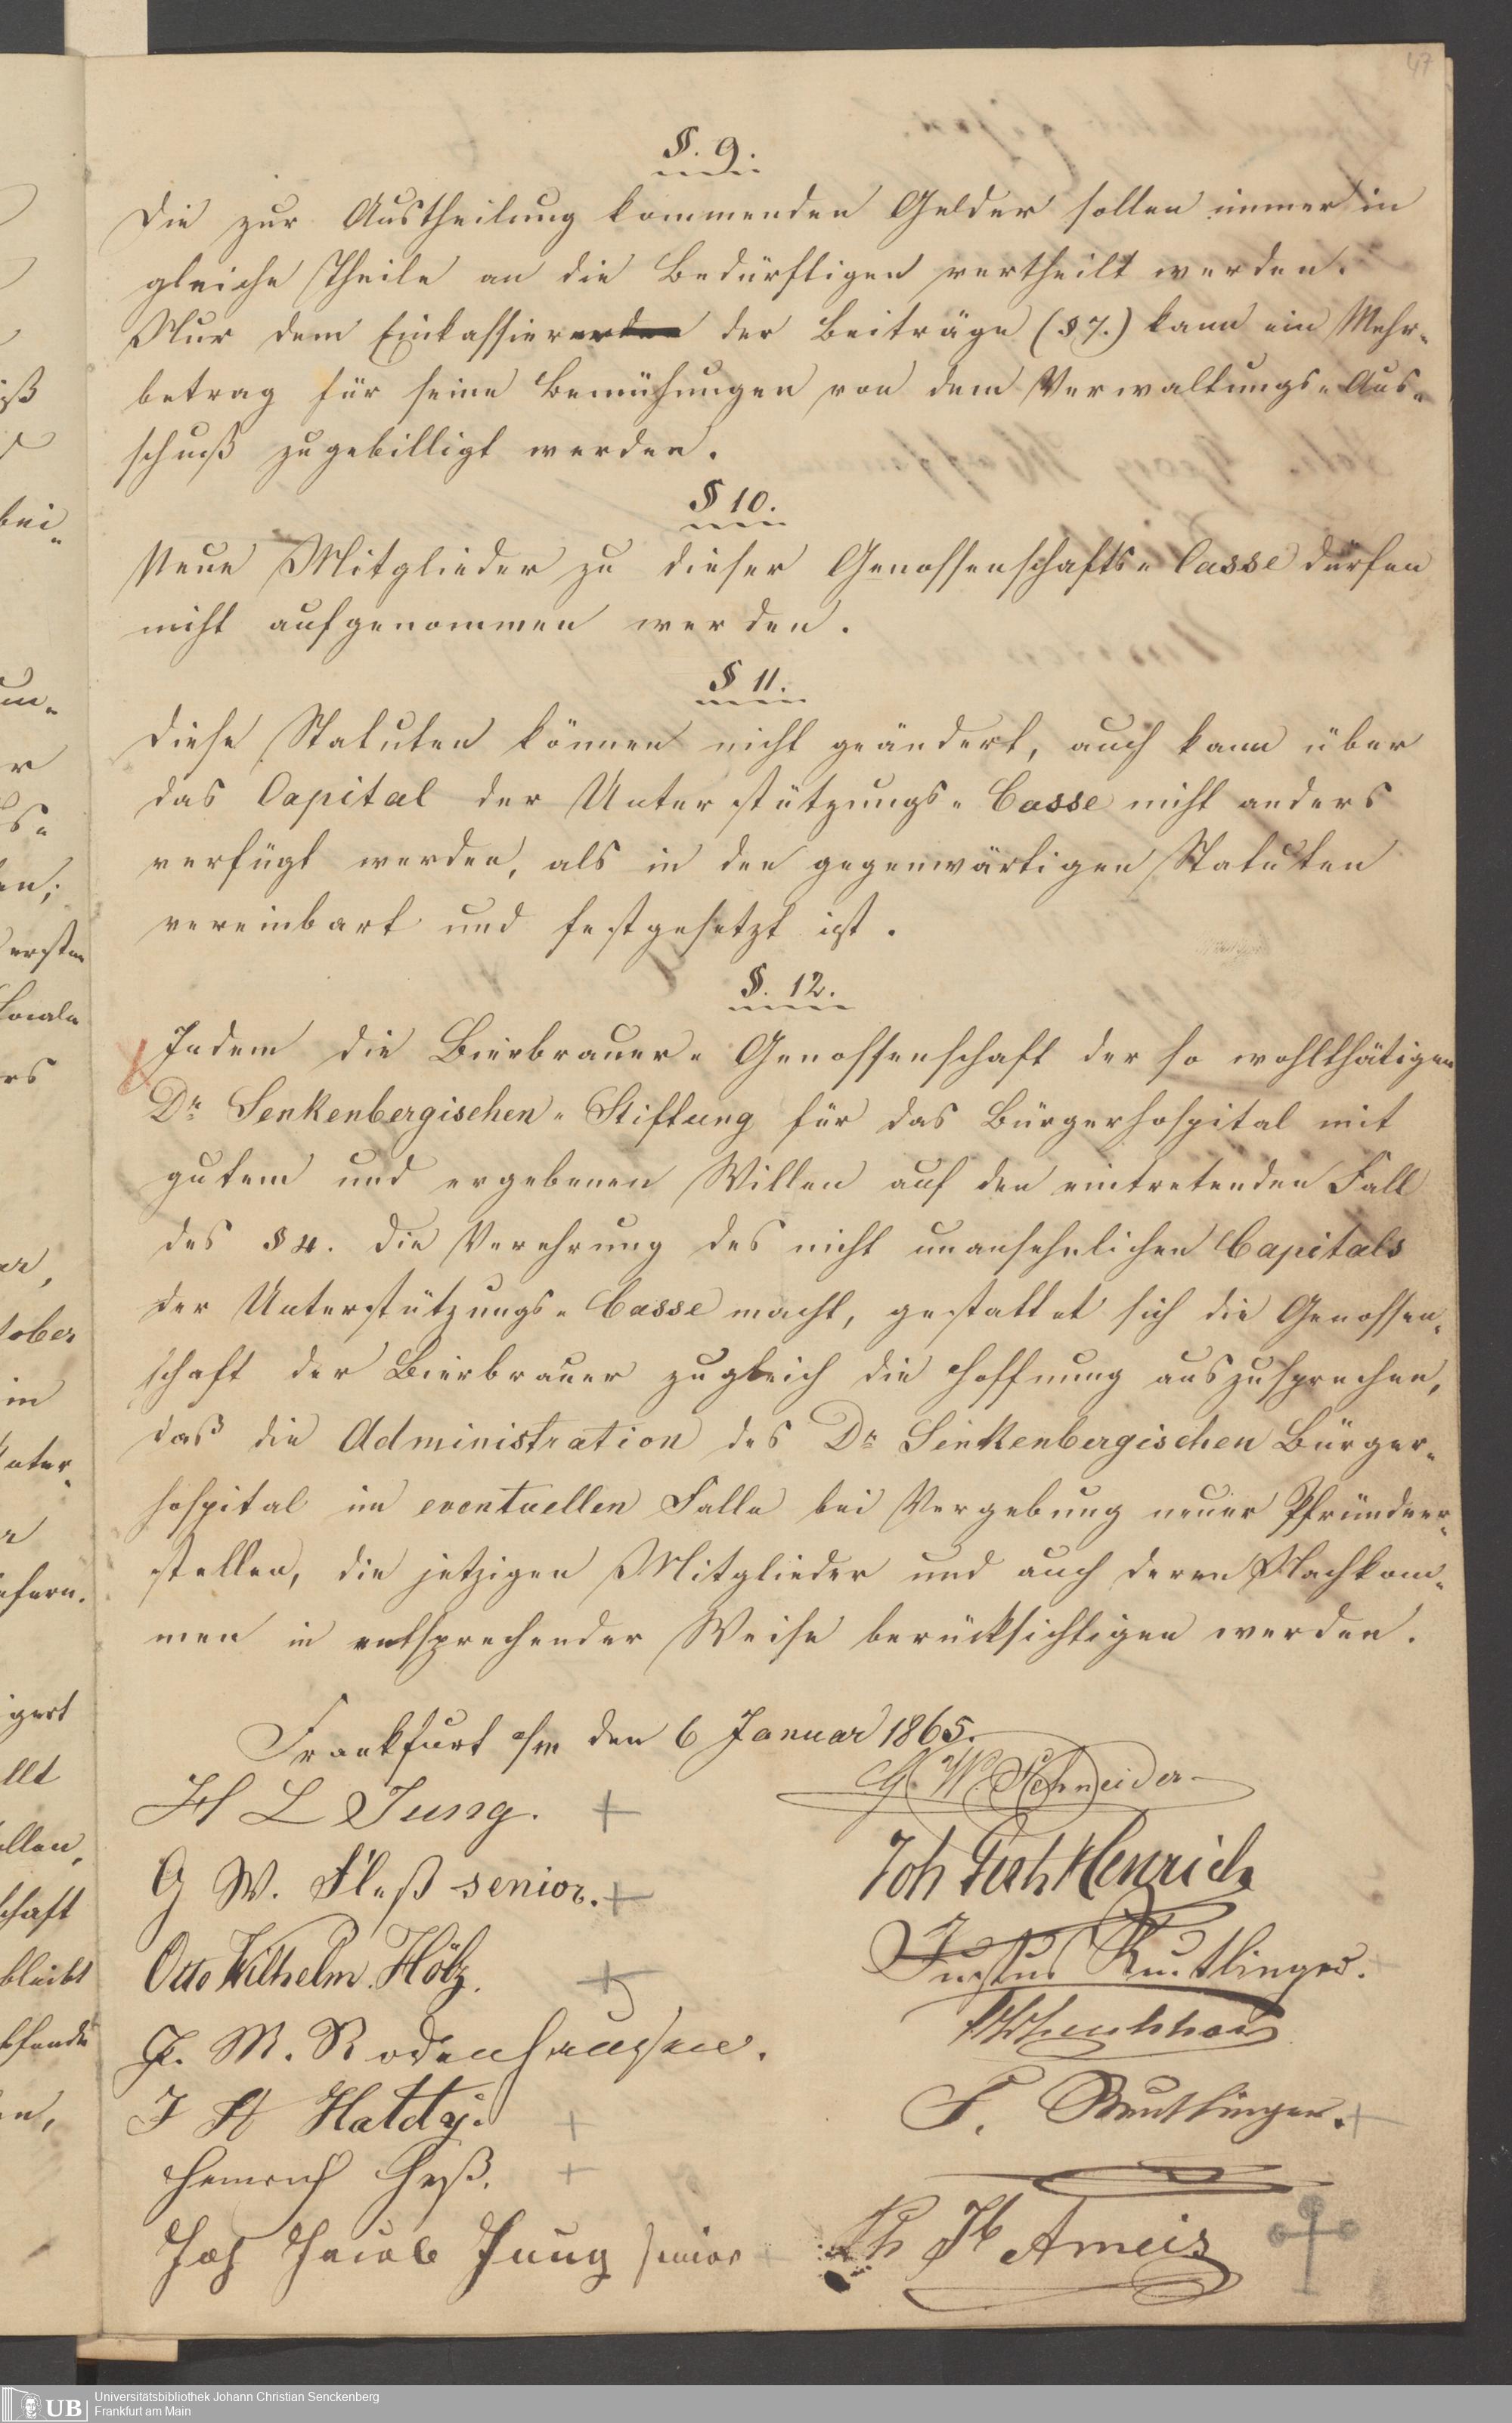 47
§. 9.
Die zur Austheilung kommenden Gelder sollen immer in
gleiche Theile an die Bedürftigen vertheilt werden.
Nur dem Einkassierer der Beiträge (§ 7.) kann ein Mehr-
betrag für seine Bemühungen von dem Verwaltungs-Aus-
schuß zugebilligt werden.
§ 10.
Neue Mitglieder zu dieser Genossenschafts-Casse dürfen
nicht aufgenommen werden.
§ 11.
Diese Statuten können nicht geändert, auch kann über
das Capital der Unterstützungs-Casse nicht anders
verfügt werden, als in den gegenwärtigen Statuten
vereinbart und festgesetzt ist.
§. 12.
Indem die Bierbrauer-Genossenschaft der so wohlthätigen
Dr Senkenbergischen-Stiftung für das Bürgerhospital mit
gutem und ergebenen Willen auf den eintretenden Fall
des § 4. die Verehrung des nicht unansehnlichen Capitals
der Unterstützungs-Casse macht, gestattet sich die Genossen-
schaft der Bierbrauer zugleich die Hoffnung auszusprechen,
daß die Administration des Dr Senkenbergischen Bürger-
hospital im eventuellen Falle bei Vergebung neuer Pfründner-
stellen, die jetzigen Mitglieder und auch deren Nachkom-
men in entsprechender Weise berücksichtigen werden.
Frankfurt a/m den 6 Januar 1865.
G. W. Schneider
H L Jung.
G W. Fleß senior.
Joh Henrich
Otto Wilhelm Hölz.
Justus Reutlinger.
J. M. Rodenhausen.
J H
F. Reutlinger.
Heinrich Heß.
Joh Jacob Jung senior
Ph Jb Ameis
Universitätsbibliothek Johann Christian Senckenberg
Frankfurt am Main
UB